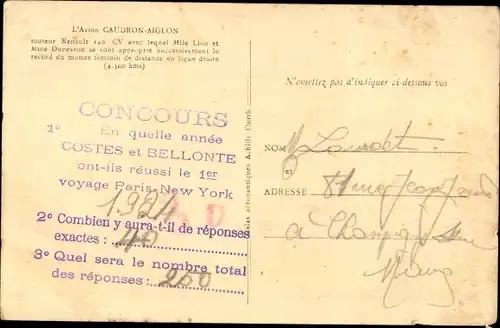 L'Avion CAUDRON-AIGLON
moteur Renault 140 CV avec lequel Mlle Lion et
Mme Dupeyron se sont approprié successivement le
record du monde féminin de distance en ligne droite
(4.500 kms)
CONCOURS
1º En quelle année
COSTES et BELLONTE
ont-ils réussi le 1er
voyage Paris-New York
1924
2º Combien y aura-t-il de réponses
exactes : 40
3º Quel sera le nombre total
des réponses : 250
N'omettez pas d'indiquer ci-dessous vos
NOM
et
ADRESSE
à Champigny